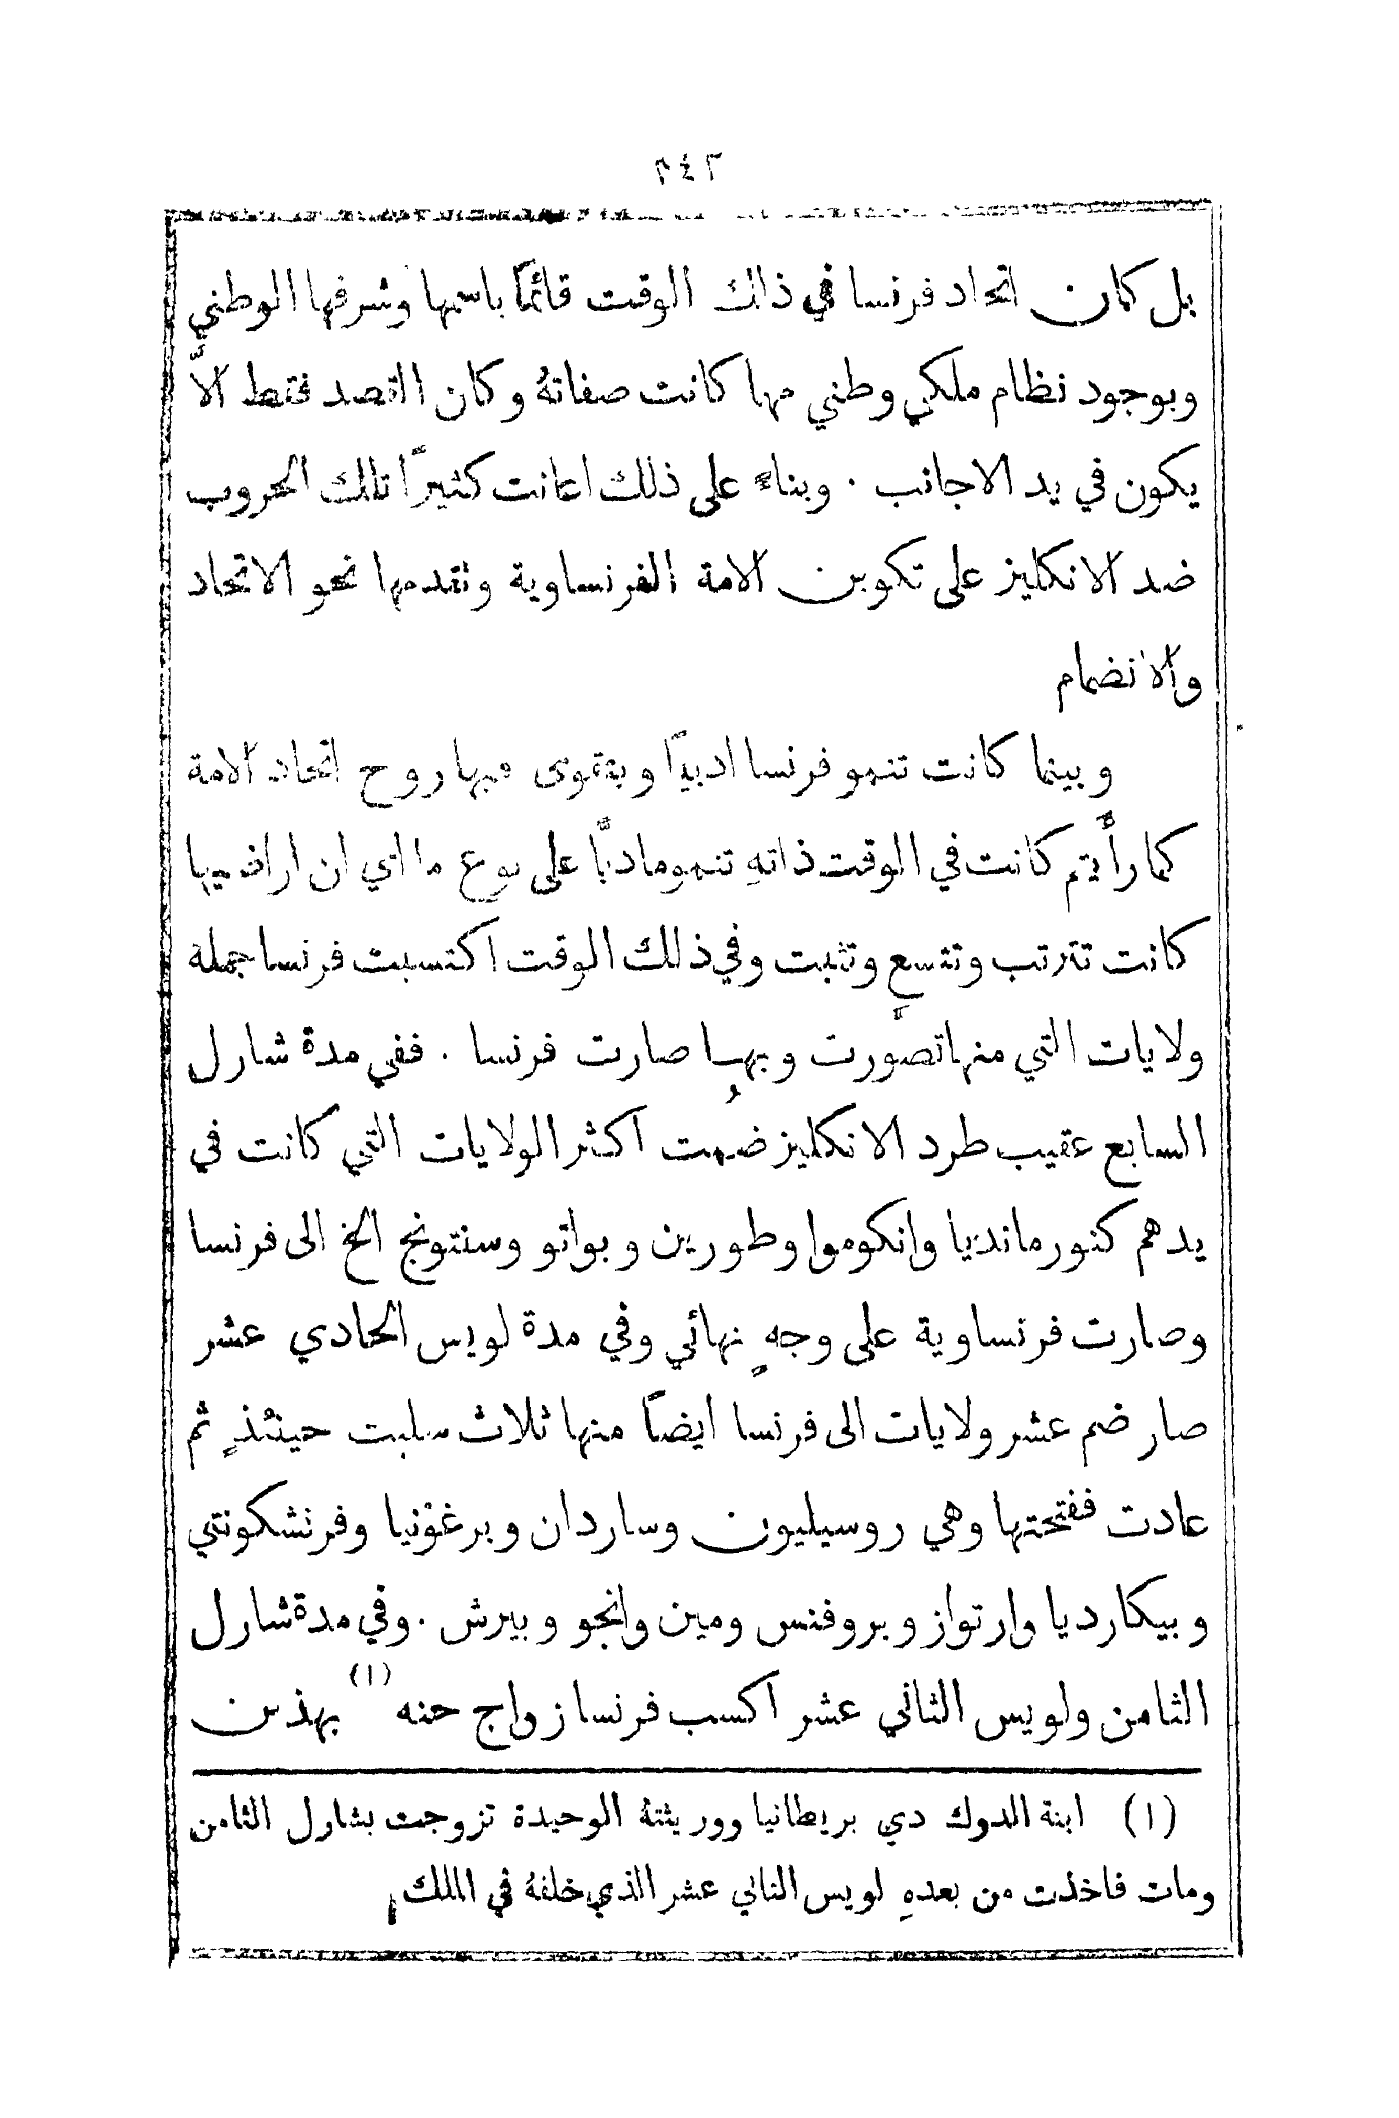 ٢٤٩
بل كان اتحاد فرنسا في ذلك الوقت قائمًا باسمها وشرفها الوطني
وبوجود نظام ملكي وطني مها كانت صفاتهُ وكان القصد فقط الاَّ
يكون في يد الاجانب . وبناءً على ذلك اعانت كثيرًا تلك الحروب
ضد الانكليز على تكوين الامة الفرنساوية وتقدمها نحو الاتحاد
والانضمام
وبينما كانت تنمو فرنسا ادبيًا ويتقوى فيها روح اتحاد الامة
كما رأَيتم كانت في الوقت ذاتهِ تنمو ماديًّا على نوع ما اي ان اراضيها
كانت تترتب وتتسع وتثبت وفي ذلك الوقت اكتسبت فرنسا جملة
ولايات التي منها تصوَّرت وبها صارت فرنسا . ففي مدة شارل
السابع عقيب طرد الانكليز ضُمت اكثر الولايات التي كانت في
يدهم كنورمانديا وانكوموا وطورين وبواتو وسنتونج الخ الى فرنسا
وصارت فرنساوية على وجهٍ نهائي وفي مدة لويس الحادي عشر
صار ضم عشر ولايات الى فرنسا ايضًا منها ثلاث سلبت حينئذٍ ثم
عادت ففتحتها وهي روسيليون وساردان وبرغونيا وفرنشكونتي
وبيكارديا وارتواز وبروفنس ومين وانجو وبيرش . وفي مدة شارل
الثامن ولويس الثاني عشر اكسب فرنسا زواج حنه (١) بهذين
(١) ابنة الدوك دي بريطانيا ووريثتهُ الوحيدة تزوجت بشارل الثامن
ومات فاخذت من بعدهِ لويس الثاني عشر الذي خلفهُ في الملك